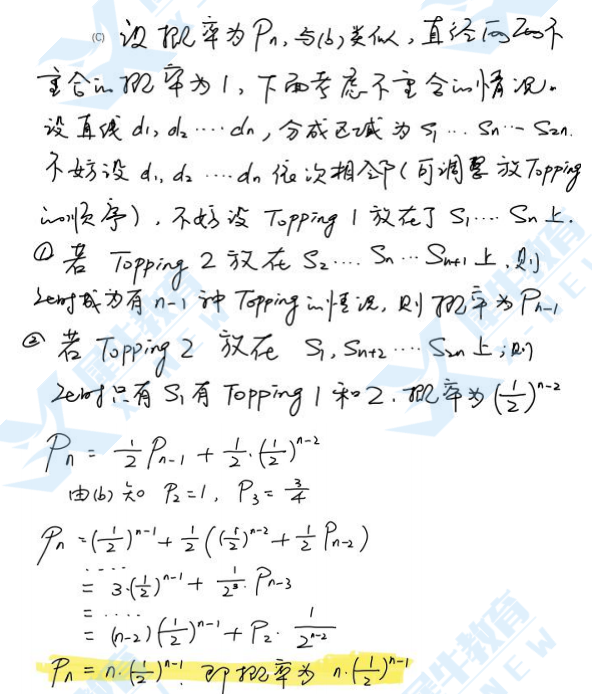 (C) 设概率为Pn,与(b)类似,直径间Zeb不
重合的概率为1,下面考虑不重合的情况。
设直线 d1, d2 ⋯⋯ dn,分成区域为 S1 ⋯ Sn ⋯ S2n.
不妨设 d1, d2 ⋯⋯ dn 依次相邻(可调整放Topping
的顺序),不妨设 Topping 1 放在了 S1 ⋯⋯ Sn 上.
① 若 Topping 2 放在 S2 ⋯⋯ Sn ⋯ Sn+1 上,则
Zeb时成为有 n-1 种 Topping的情况,则概率为 Pn-1
② 若 Topping 2 放在 S1, Sn+2 ⋯⋯ S2n 上,则
Zeb时只有 S1 有 Topping 1 和 2. 概率为 (1/2)^n-2
Pn = 1/2 Pn-1 + 1/2 · (1/2)^n-2
由(b)知 P2=1, P3 = 3/4
Pn = (1/2)^n-1 + 1/2 ((1/2)^n-2 + 1/2 Pn-2)
⋯⋯
= 3·(1/2)^n-1 + 1/2^3 · Pn-3
= ⋯⋯
= (n-2)(1/2)^n-1 + P2 · 1/2^n-2
Pn = n·(1/2)^n-1. 即概率为 n·(1/2)^n-1
犀牛教育
X-NEW